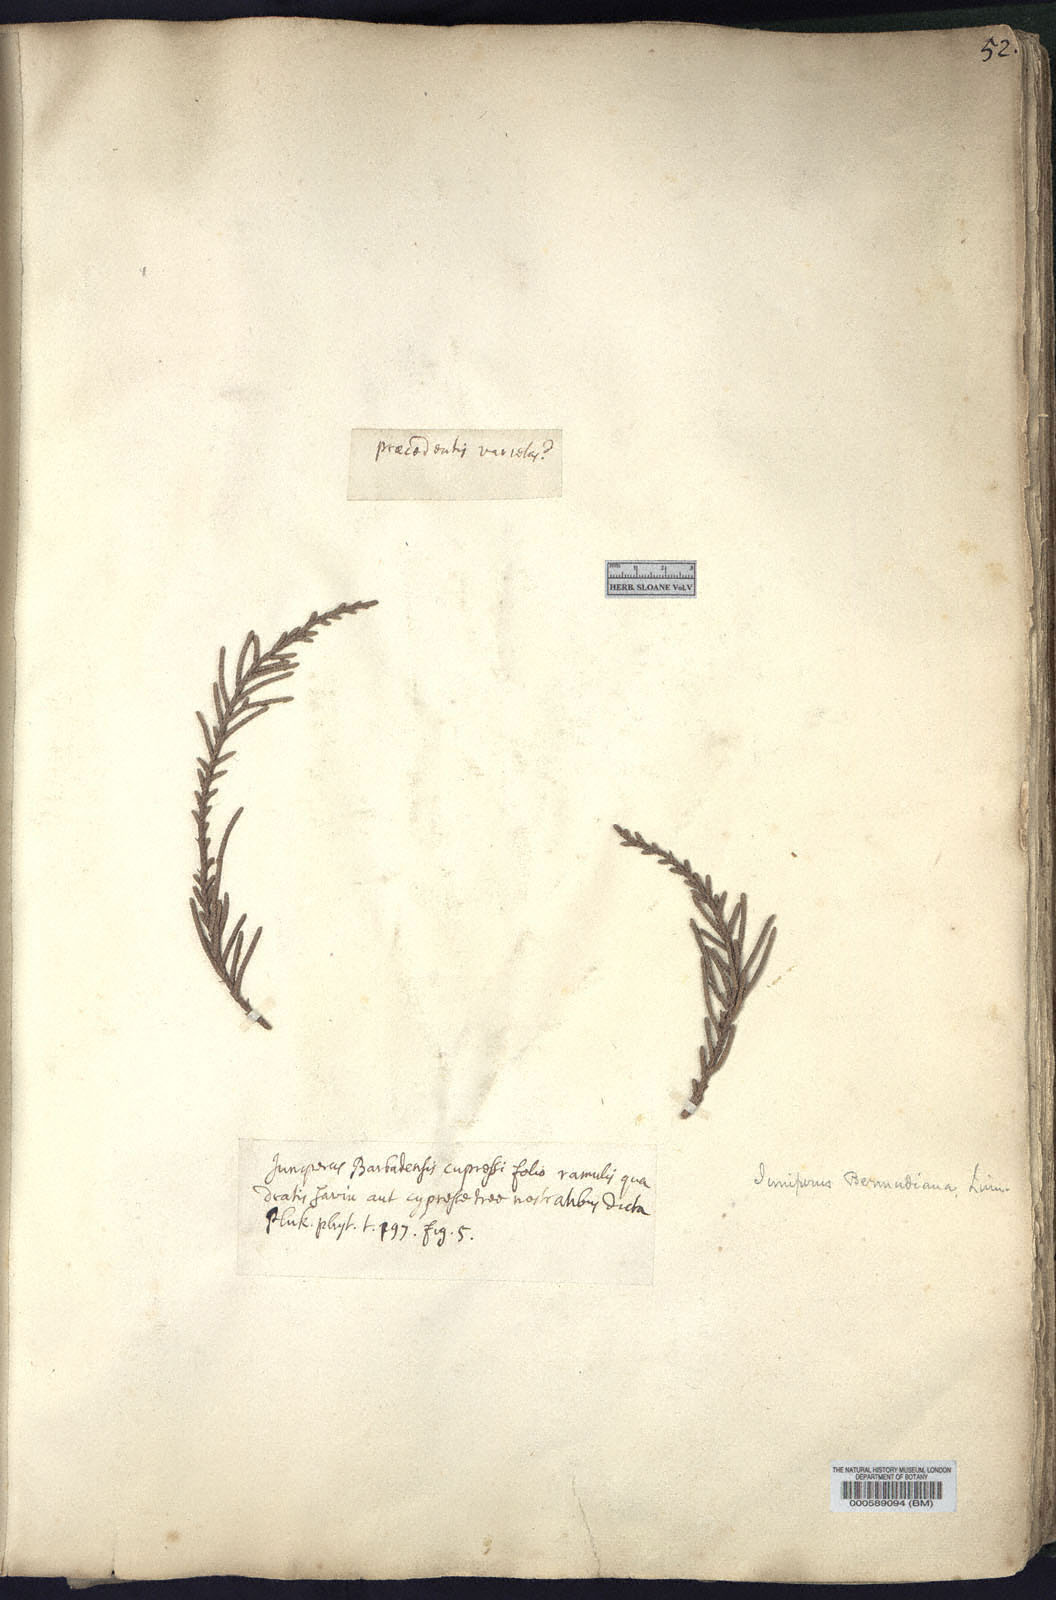 52.
præcedentis varietas?
HERB. SLOANE Vol.V
Juniperus Barbadensis cupressi folio ramulis qua
dratis Savin aut cypresse tree nostratibus dicta
Pluk. phyt. t. 197. fig. 5.
Juniperus Bermudiana, Linn.
THE NATURAL HISTORY MUSEUM, LONDON
DEPARTMENT OF BOTANY
000589094 (BM)